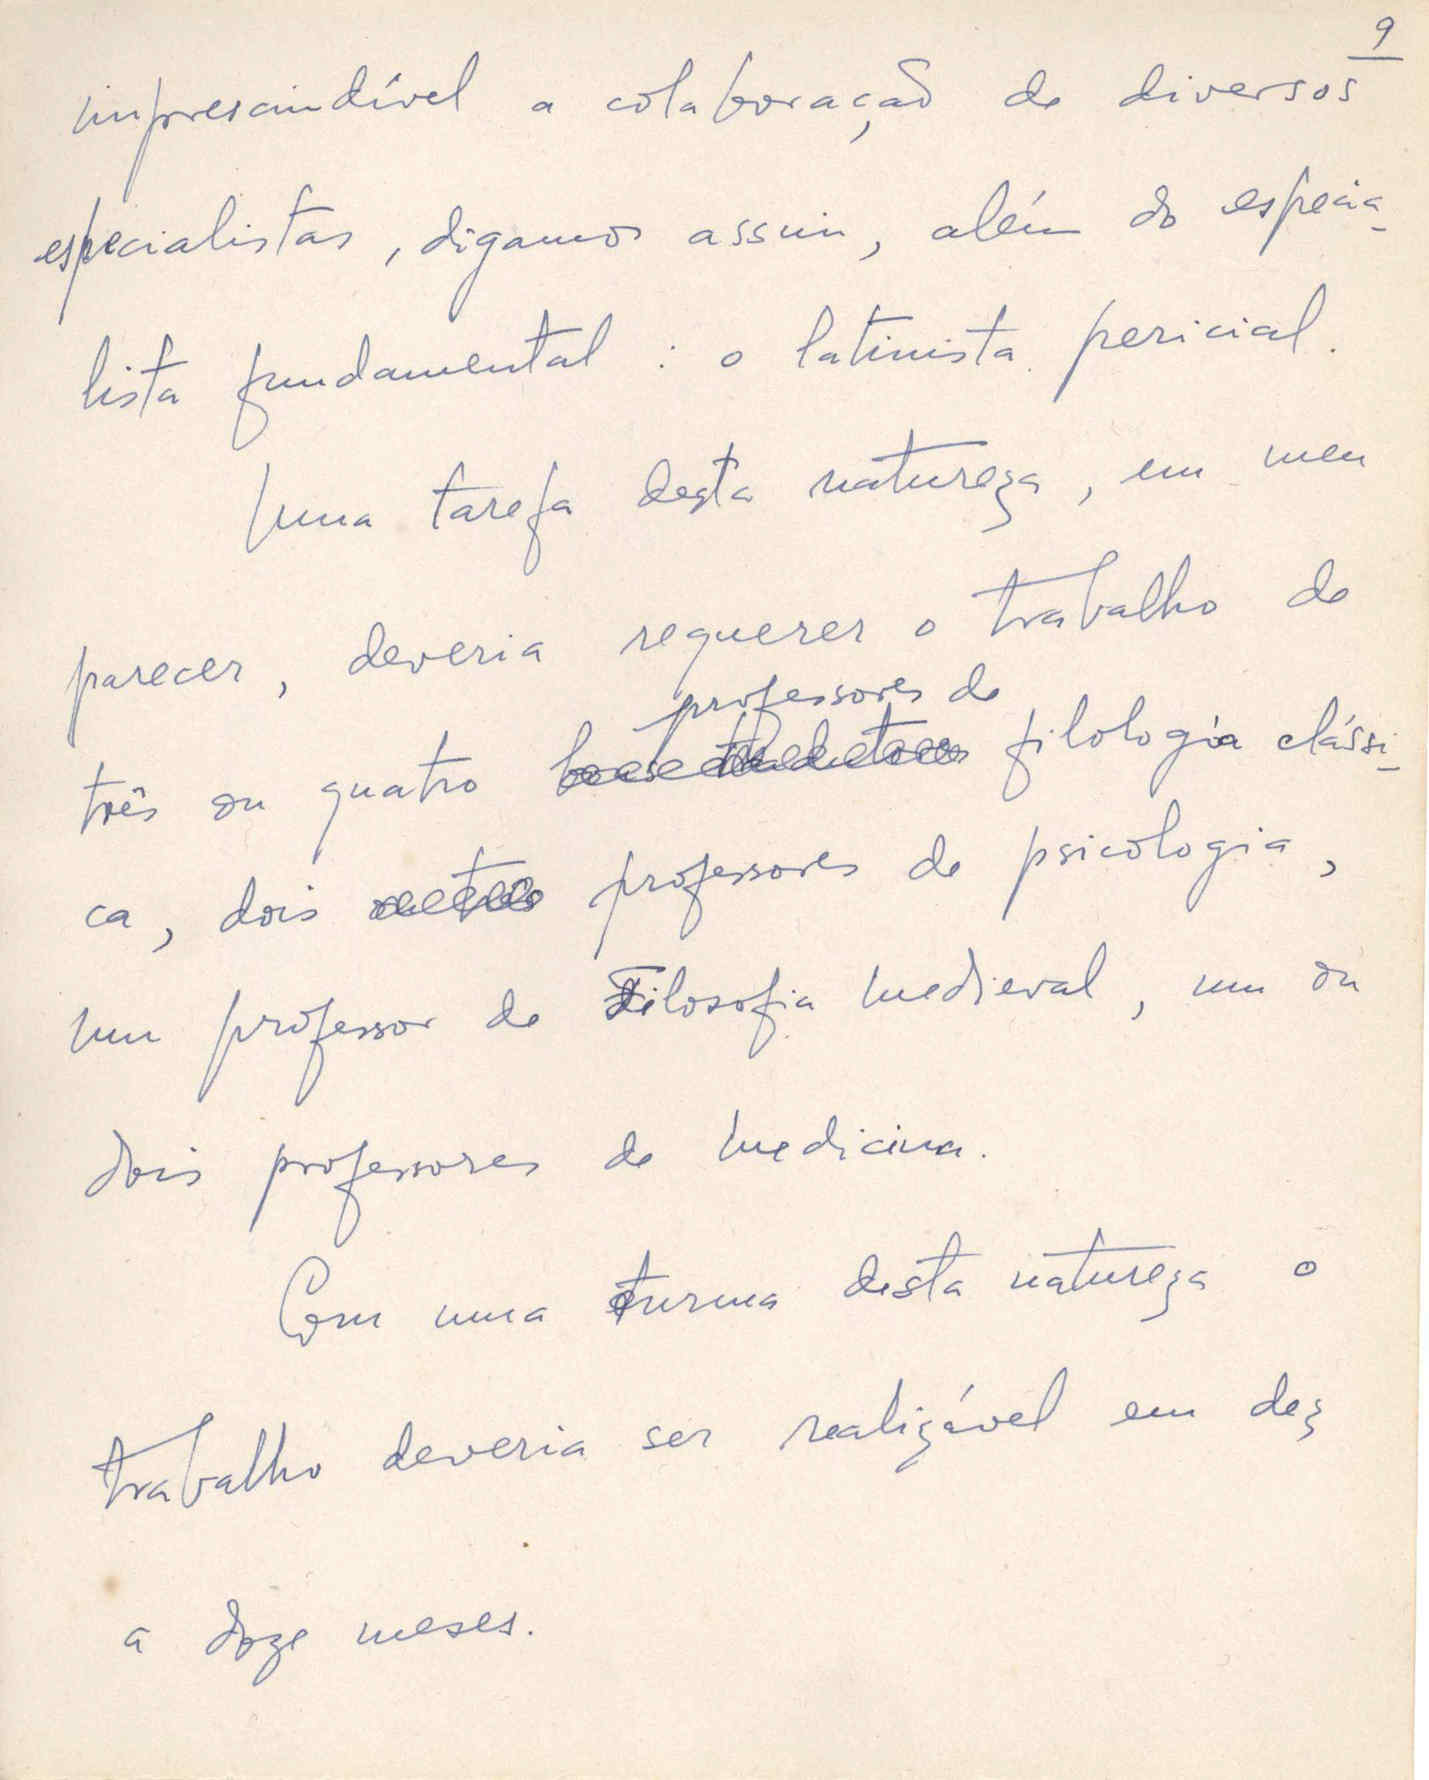 9
imprescindível a colaboração de diversos
especialistas, digamos assim, além do especia-
lista fundamental : o latinista pericial.
Uma tarefa desta natureza, em meu
parecer, deveria requerer o trabalho de
professores de
três ou quatro filologia clássi-
ca, dois professores de psicologia,
um professor de Filosofia medieval, um ou
dois professores de medicina.
Com uma turma desta natureza o
trabalho deveria ser realizável em dez
a doze meses.